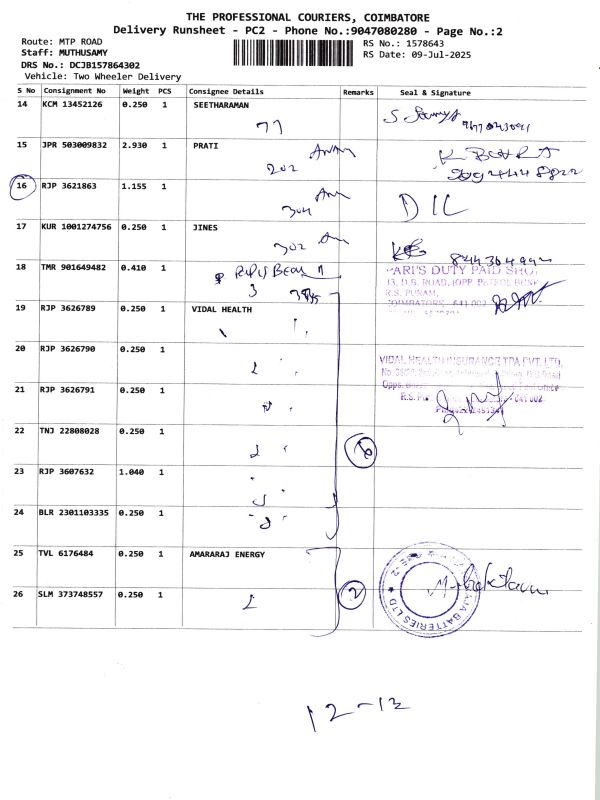 THE PROFESSIONAL COURIERS, COIMBATORE
Delivery Runsheet - PC2 - Phone No.:9047080280 - Page No.:2
Route: MTP ROAD
RS No.: 1578643
Staff: MUTHUSAMY
RS Date: 09-Jul-2025
DRS No.: DCJB157864302
Vehicle: Two Wheeler Delivery
S No Consignment No Weight PCS Consignee Details Remarks Seal & Signature
14 KCM 13452126 0.250 1 SEETHARAMAN
77
15 JPR 503009832 2.930 1 PRATI
202
16 RJP 3621863 1.155 1
304 DIL
17 KUR 1001274756 0.250 1 JINES
302
18 TMR 901649482 0.410 1
3
PARI'S DUTY PAID SHOP
R.S. PURAM,
COIMBATORE - 641 002
19 RJP 3626789 0.250 1 VIDAL HEALTH
20 RJP 3626790 0.250 1
VIDAL HEALTH INSURANCE TPA PVT. LTD.
21 RJP 3626791 0.250 1
22 TNJ 22808028 0.250 1
6
23 RJP 3607632 1.040 1
24 BLR 2301103335 0.250 1
25 TVL 6176484 0.250 1 AMARARAJ ENERGY
26 SLM 373748557 0.250 1
2
BATTERIES LTD
12-12